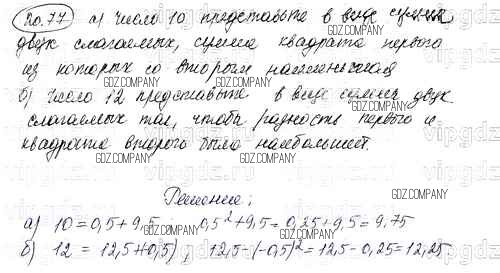 20.77 а) Число 10 представьте в виде суммы
двух слагаемых, сумма квадрата первого
из которых со вторым наименьшая
б) Число 12 представьте в виде суммы двух
слагаемых так, чтобы разность первого и
квадрата второго была наибольшей.
Решение:
а) 10 = 0,5 + 9,5 0,5² + 9,5 = 0,25 + 9,5 = 9,75
б) 12 = 12,5 + (-0,5), 12,5 - (-0,5)² = 12,5 - 0,25 = 12,25